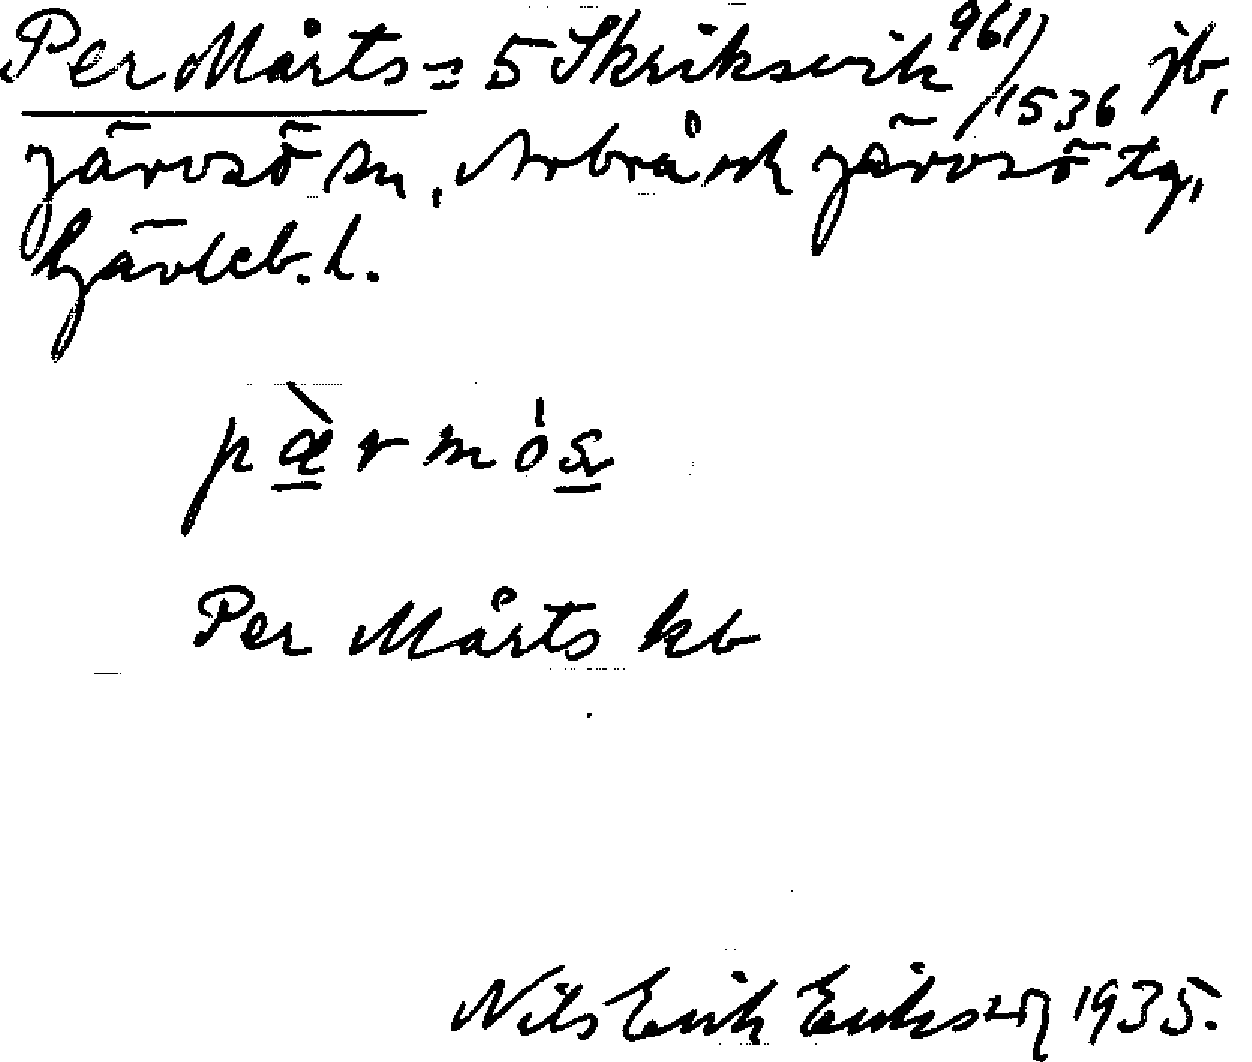 Per Mårts = 5 Skriksvik 961/1536 jb,
Järvsö sn, Arbrå och Järvsö tg,
Gävleb. l.
pæ̀rmós
Per Mårts kb
Nils Erik Eriksson 1935.